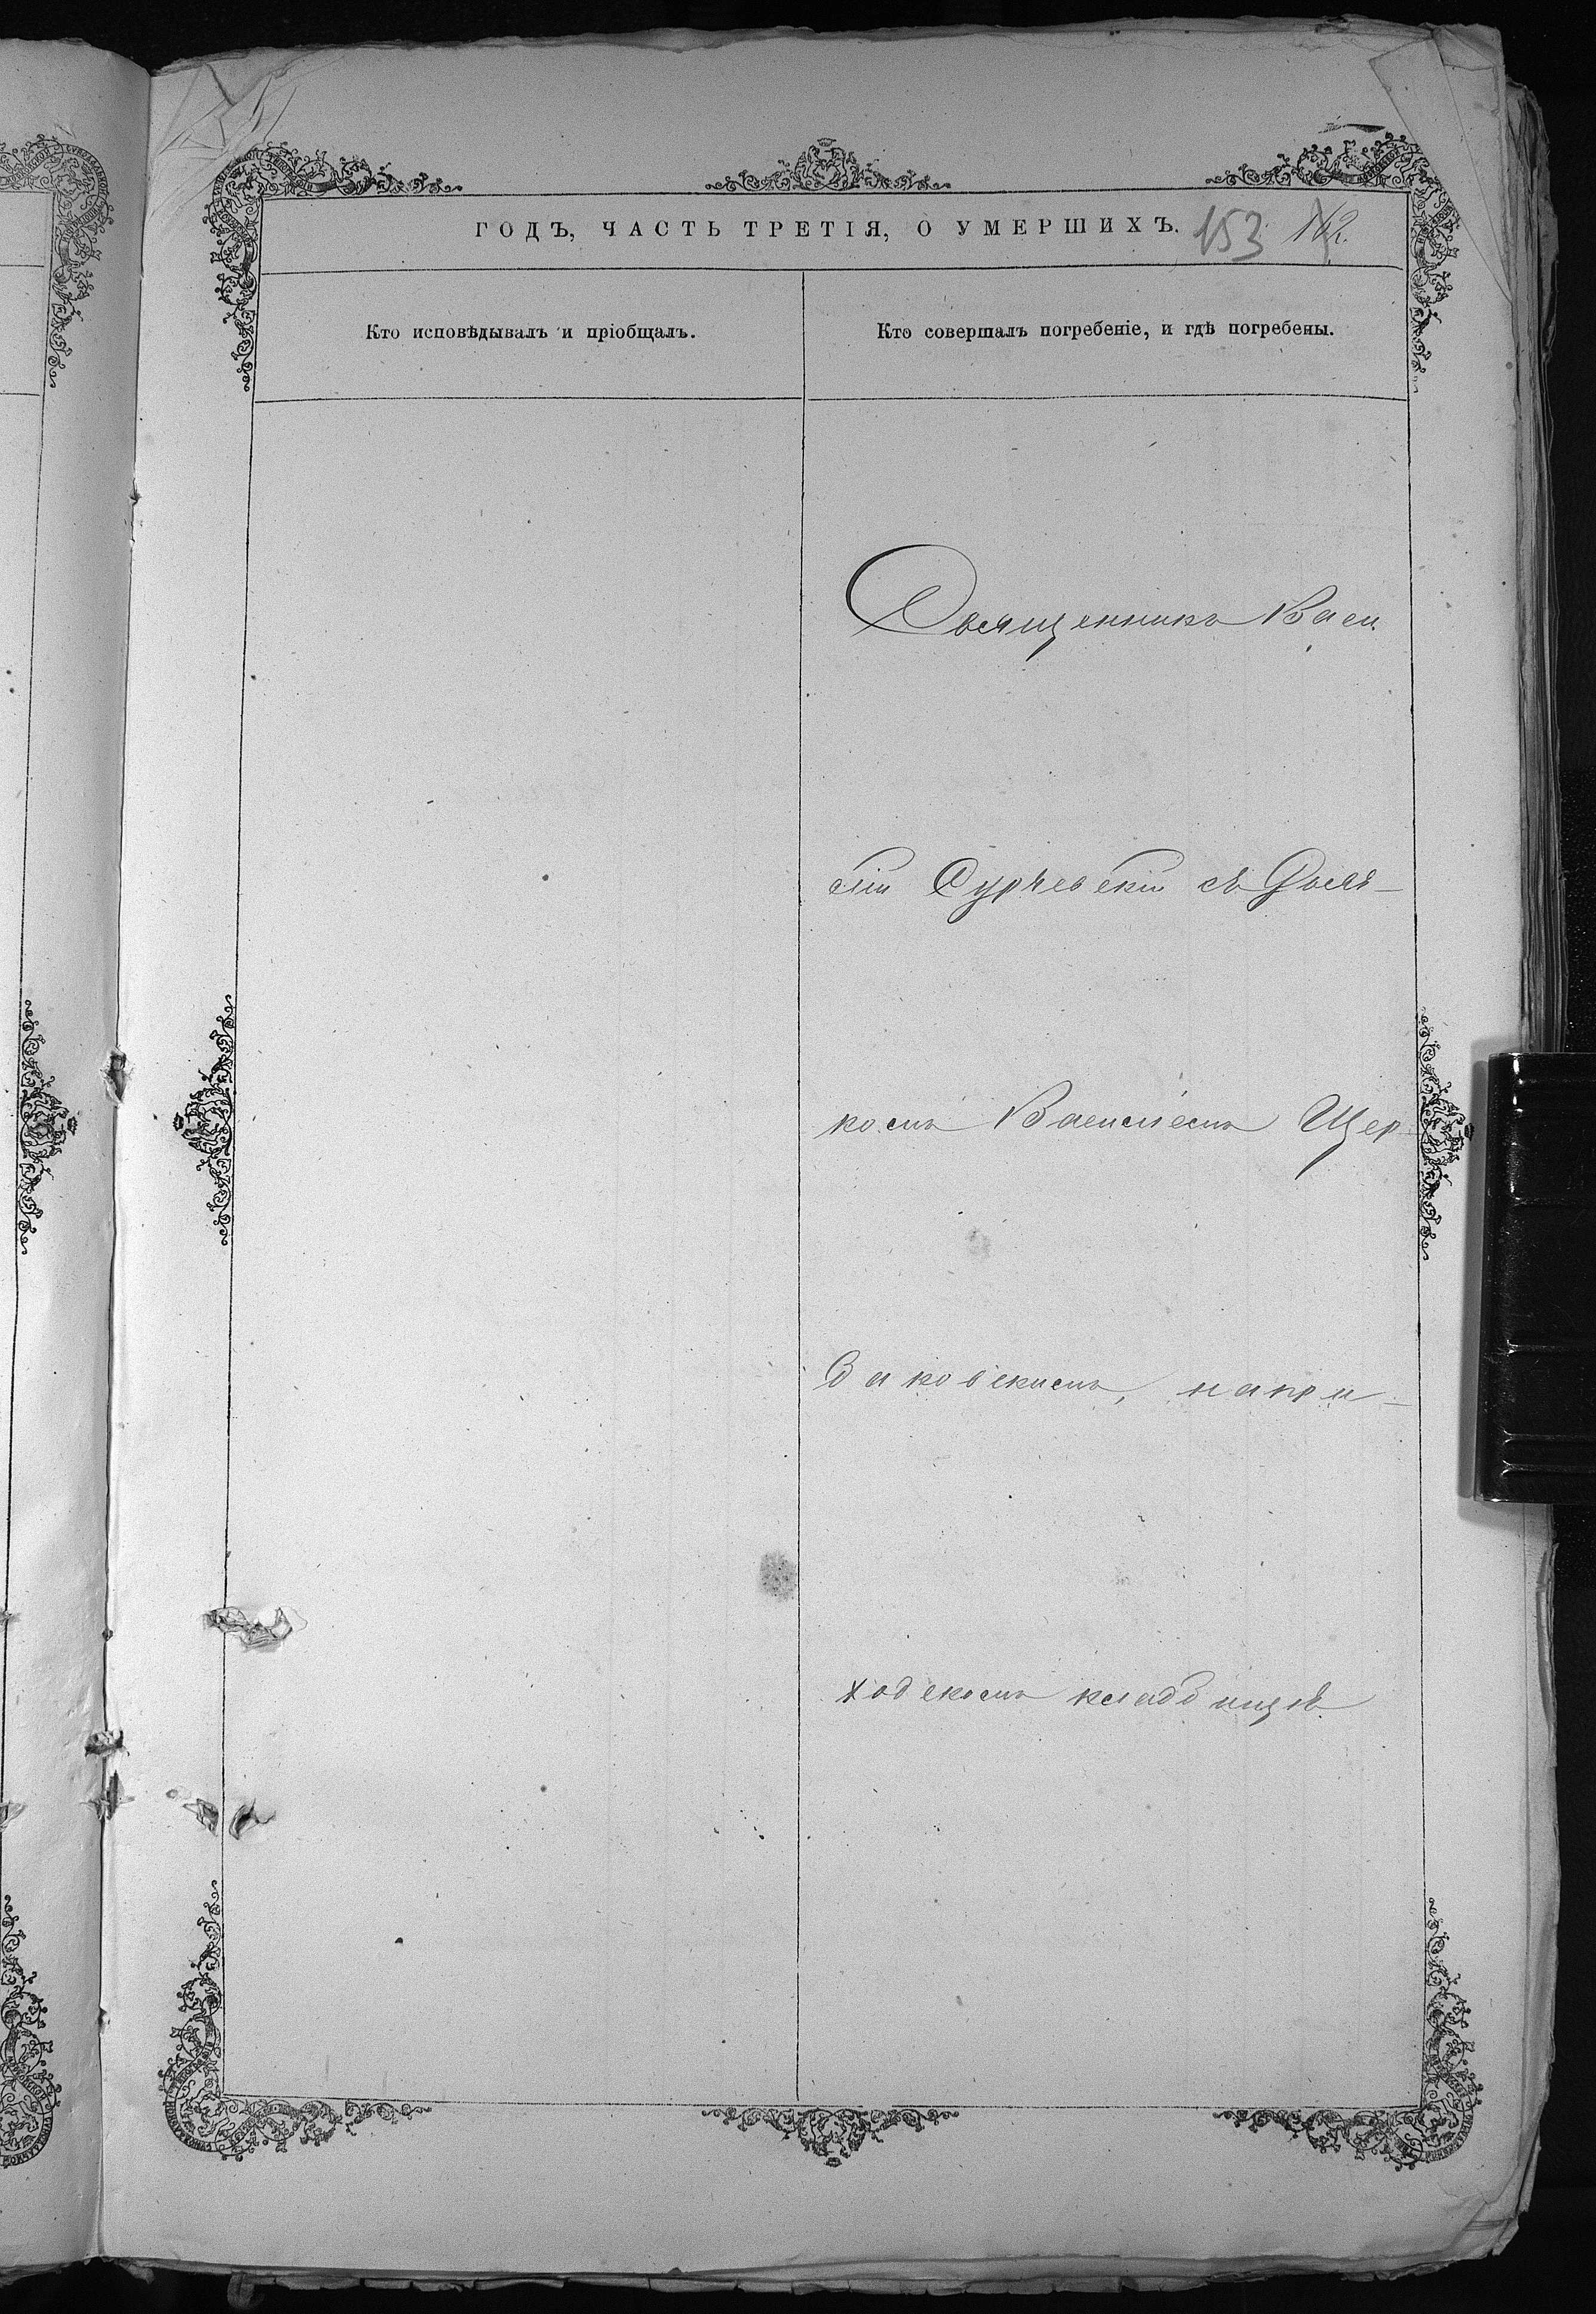 ГОДЪ, ЧАСТЬ ТРЕТІЯ, О УМЕРШИХЪ. 153 162.
Кто исповѣдывалъ и пріобщалъ.
Кто совершалъ погребеніе, и гдѣ погребены.
Священникъ Васи
лій съ
комъ Василіемъ Щер
баковскимъ, на при-
ходскомъ кладбищѣ